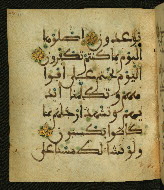 توعدون اصلوها
اليوم بما كنتم تكفرون
اليوم نختم على افوا
ههم وتكلمنا ايد
يهم وتشهد ارجلهم بما
كانوا يكسبون
ولو نشاء لطمسنا على